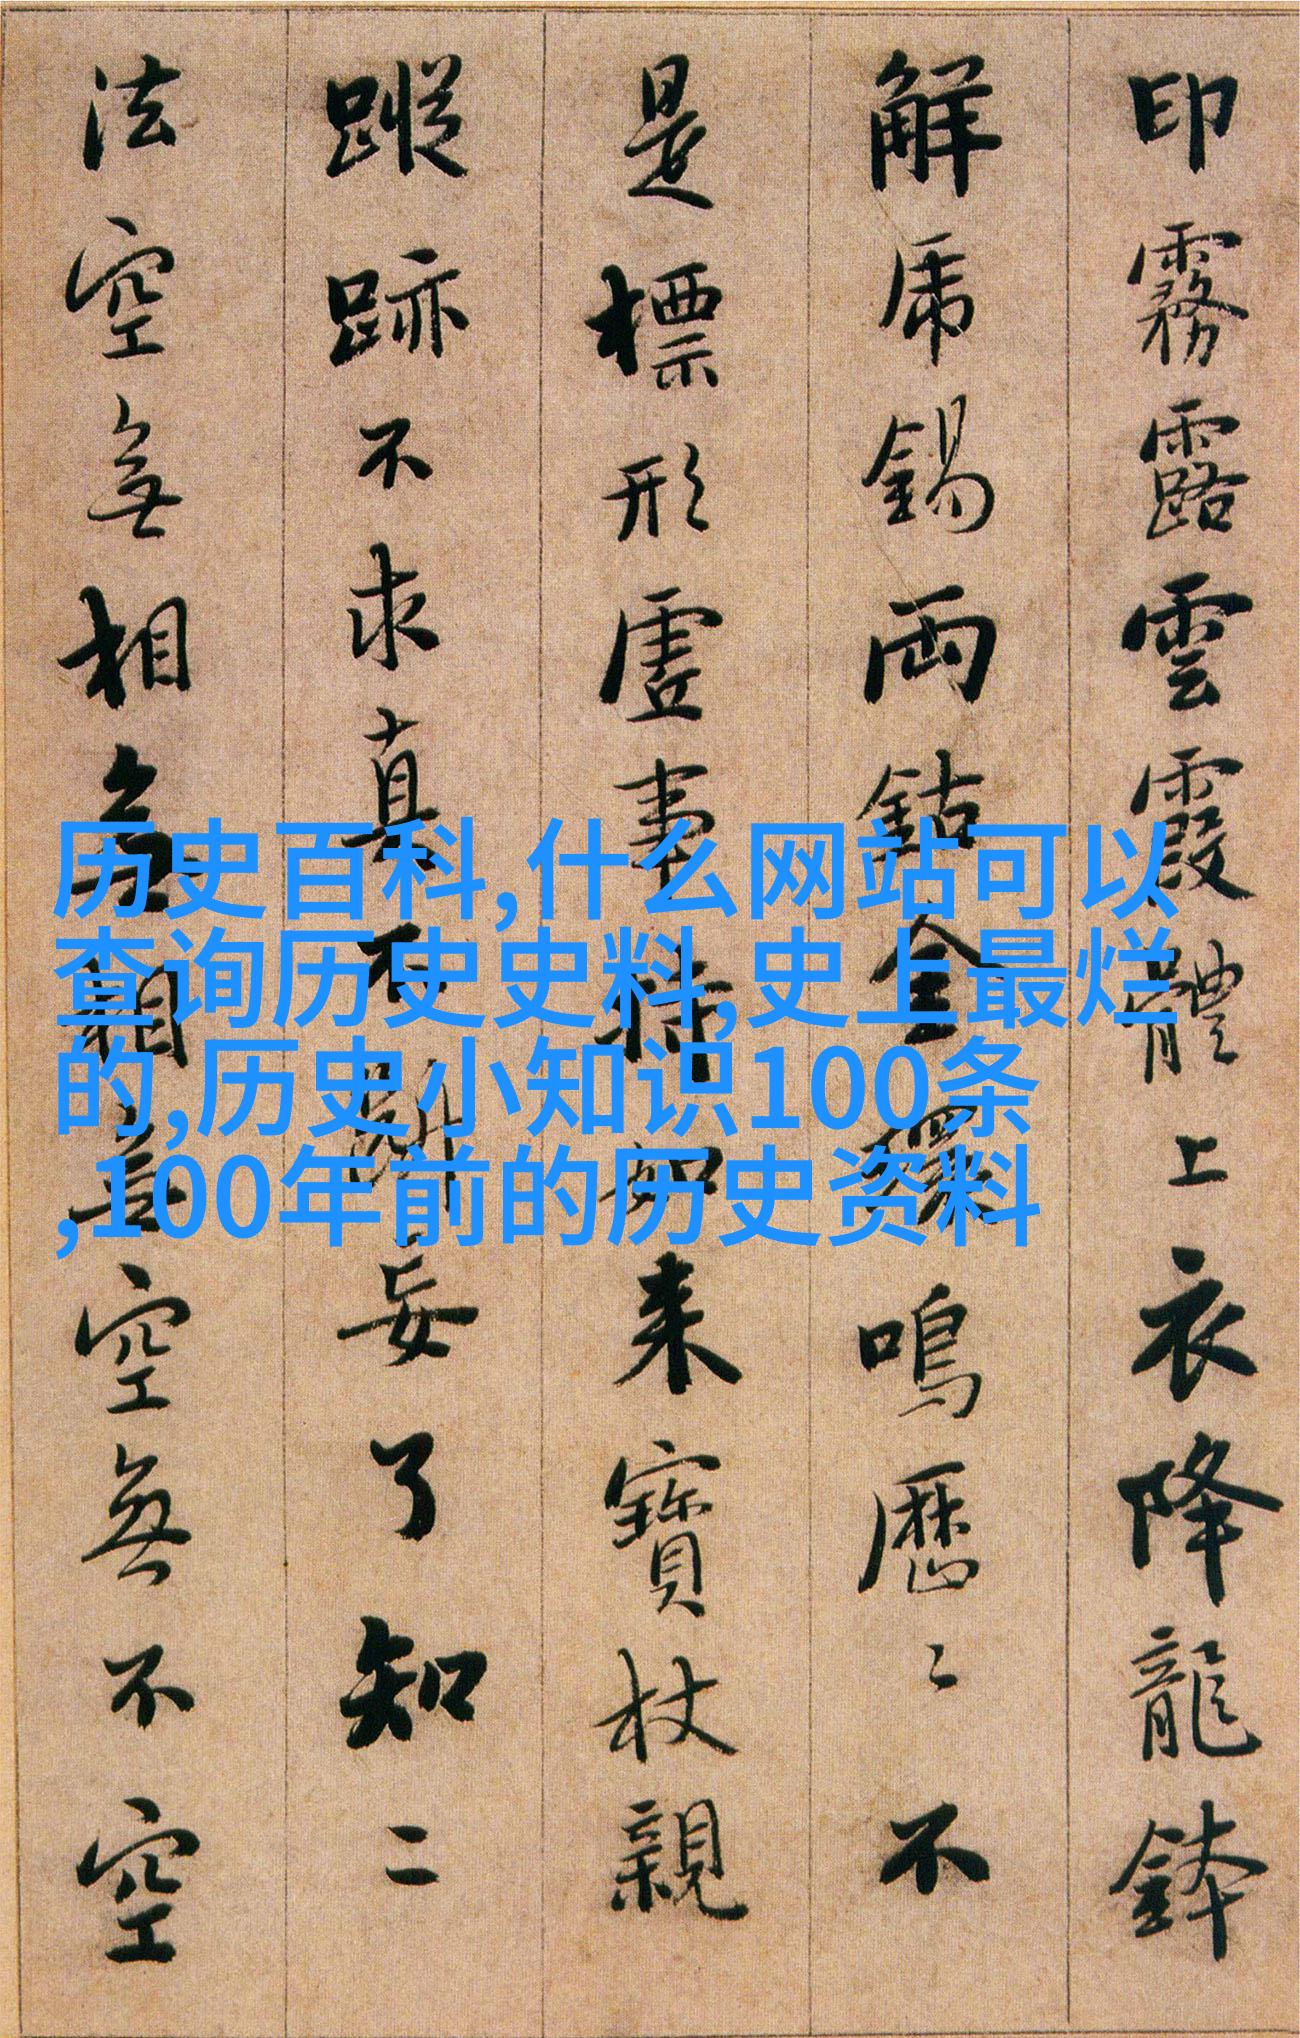 印霧露雲霞體上衣降龍鉢
解虎錫兩鈷金鐶鳴歷〻不
是標形虛事持如來寶杖親
蹤跡不求真不斷妄了知二
法空無相無相無空無不空
历史百科,什么网站可以
查询历史史料,史上最烂
的,历史小知识100条
,100年前的历史资料